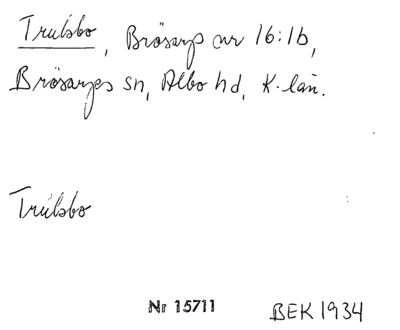 Trulsbo, Brösarp nr 16:16,
Brösarps sn, Albo hd, K-län.
Trulsbo
Nr 15711 BEK 1934